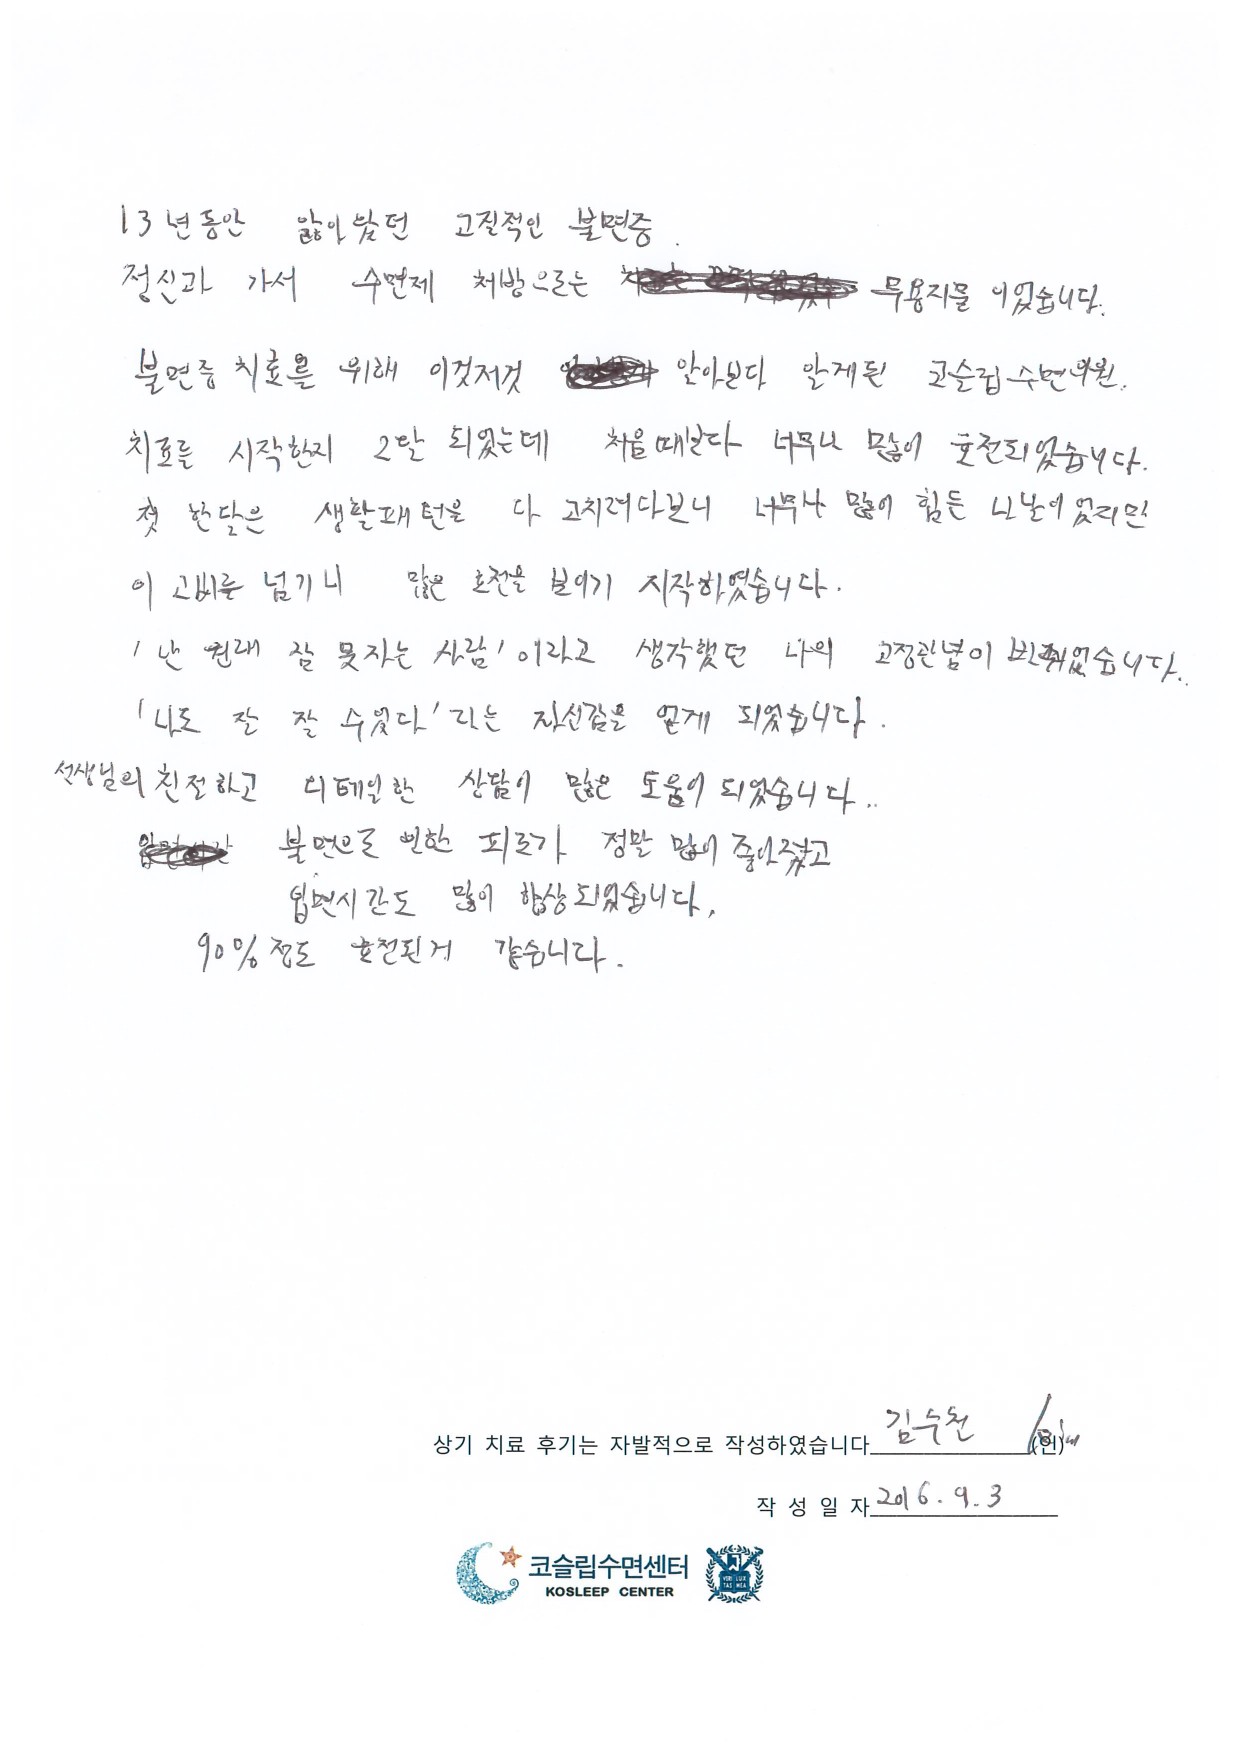 13년동안 앓아왔던 고질적인 불면증.
정신과 가서 수면제 처방으로는 무용지물 이었습니다.
불면증 치료를 위해 이것저것 알아보다 알게된 코슬립수면의원.
치료를 시작한지 2달 되었는데 처음때보다 너무나 많이 호전되었습니다.
첫 한달은 생활패턴을 다 고치려다보니 너무나 많이 힘든 나날이었지만
이 고비를 넘기니 많은 호전을 보이기 시작하였습니다.
'난 원래 잘 못자는 사람'이라고 생각했던 나의 고정관념이 바뀌었습니다..
'나도 잘 잘 수있다'라는 자신감을 얻게 되었습니다.
선생님의 친절하고 디테일한 상담이 많은 도움이 되었습니다..
불면으로 인한 피로가 정말 많이 좋아졌고
입면시간도 많이 향상되었습니다.
90%정도 호전된거 같습니다.
상기 치료 후기는 자발적으로 작성하였습니다 김수천 (인)
작 성 일 자 2016. 9. 3
코슬립수면센터
KOSLEEP CENTER
VERI LUX
TAS MEA